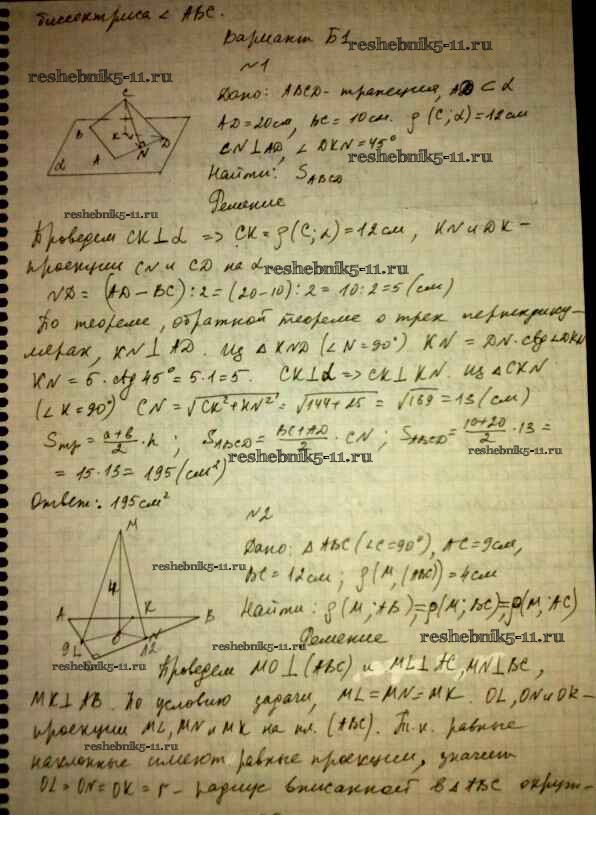 биссектриса ∠ ABC.
Вариант Б1
reshebnik5-11.ru
№1
reshebnik5-11.ru
Дано: ABCD - трапеция, AD ⊂ α
AD = 20см, BC = 10см. ρ(C;α) = 12см
CN⊥AD, ∠DKN = 45°
Найти: S_ABCD
C
B K D
A N
α
reshebnik5-11.ru
Решение
Проведем CK⊥α => CK = ρ(C;α) = 12см, KN и DK -
проекции CN и CD на α
reshebnik5-11.ru
ND = (AD - BC) : 2 = (20-10) : 2 = 10 : 2 = 5 (см)
По теореме, обратной теореме о трех перпендику-
лярах, KN⊥AD. Из △KND (∠N = 90°) KN = DN · ctg∠DKN
KN = 5 · ctg 45° = 5·1 = 5. CK⊥α => CK⊥KN. Из △CKN
(∠K = 90°) CN = √(CK² + KN²) = √(144 + 25) = √169 = 13 (см)
Sтр = (a+b)/2 · h ; S_ABCD = (BC+AD)/2 · CN ; S_ABCD = (10+20)/2 · 13 =
reshebnik5-11.ru
= 15·13 = 195 (см²)
reshebnik5-11.ru
Ответ: 195 см²
№2
M
4
A K B
9 L O N 12
reshebnik5-11.ru
Дано: △ABC (∠C = 90°), AC = 9см,
BC = 12см ; ρ(M, (ABC)) = 4см
reshebnik5-11.ru
Найти: ρ(M; AB) = ρ(M; BC) = ρ(M; AC)
Решение
reshebnik5-11.ru
reshebnik5-11.ru
reshebnik5-11.ru
Проведем MO⊥(ABC) и ML⊥AC, MN⊥BC,
MK⊥AB. По условию задачи, ML = MN = MK. OL, ON и OK -
проекции ML, MN и MK на пл. (ABC). Т.к. равные
reshebnik5-11.ru
наклонные имеют равные проекции, значит
OL = ON = OK = r - радиус вписанной в △ABC окруж-